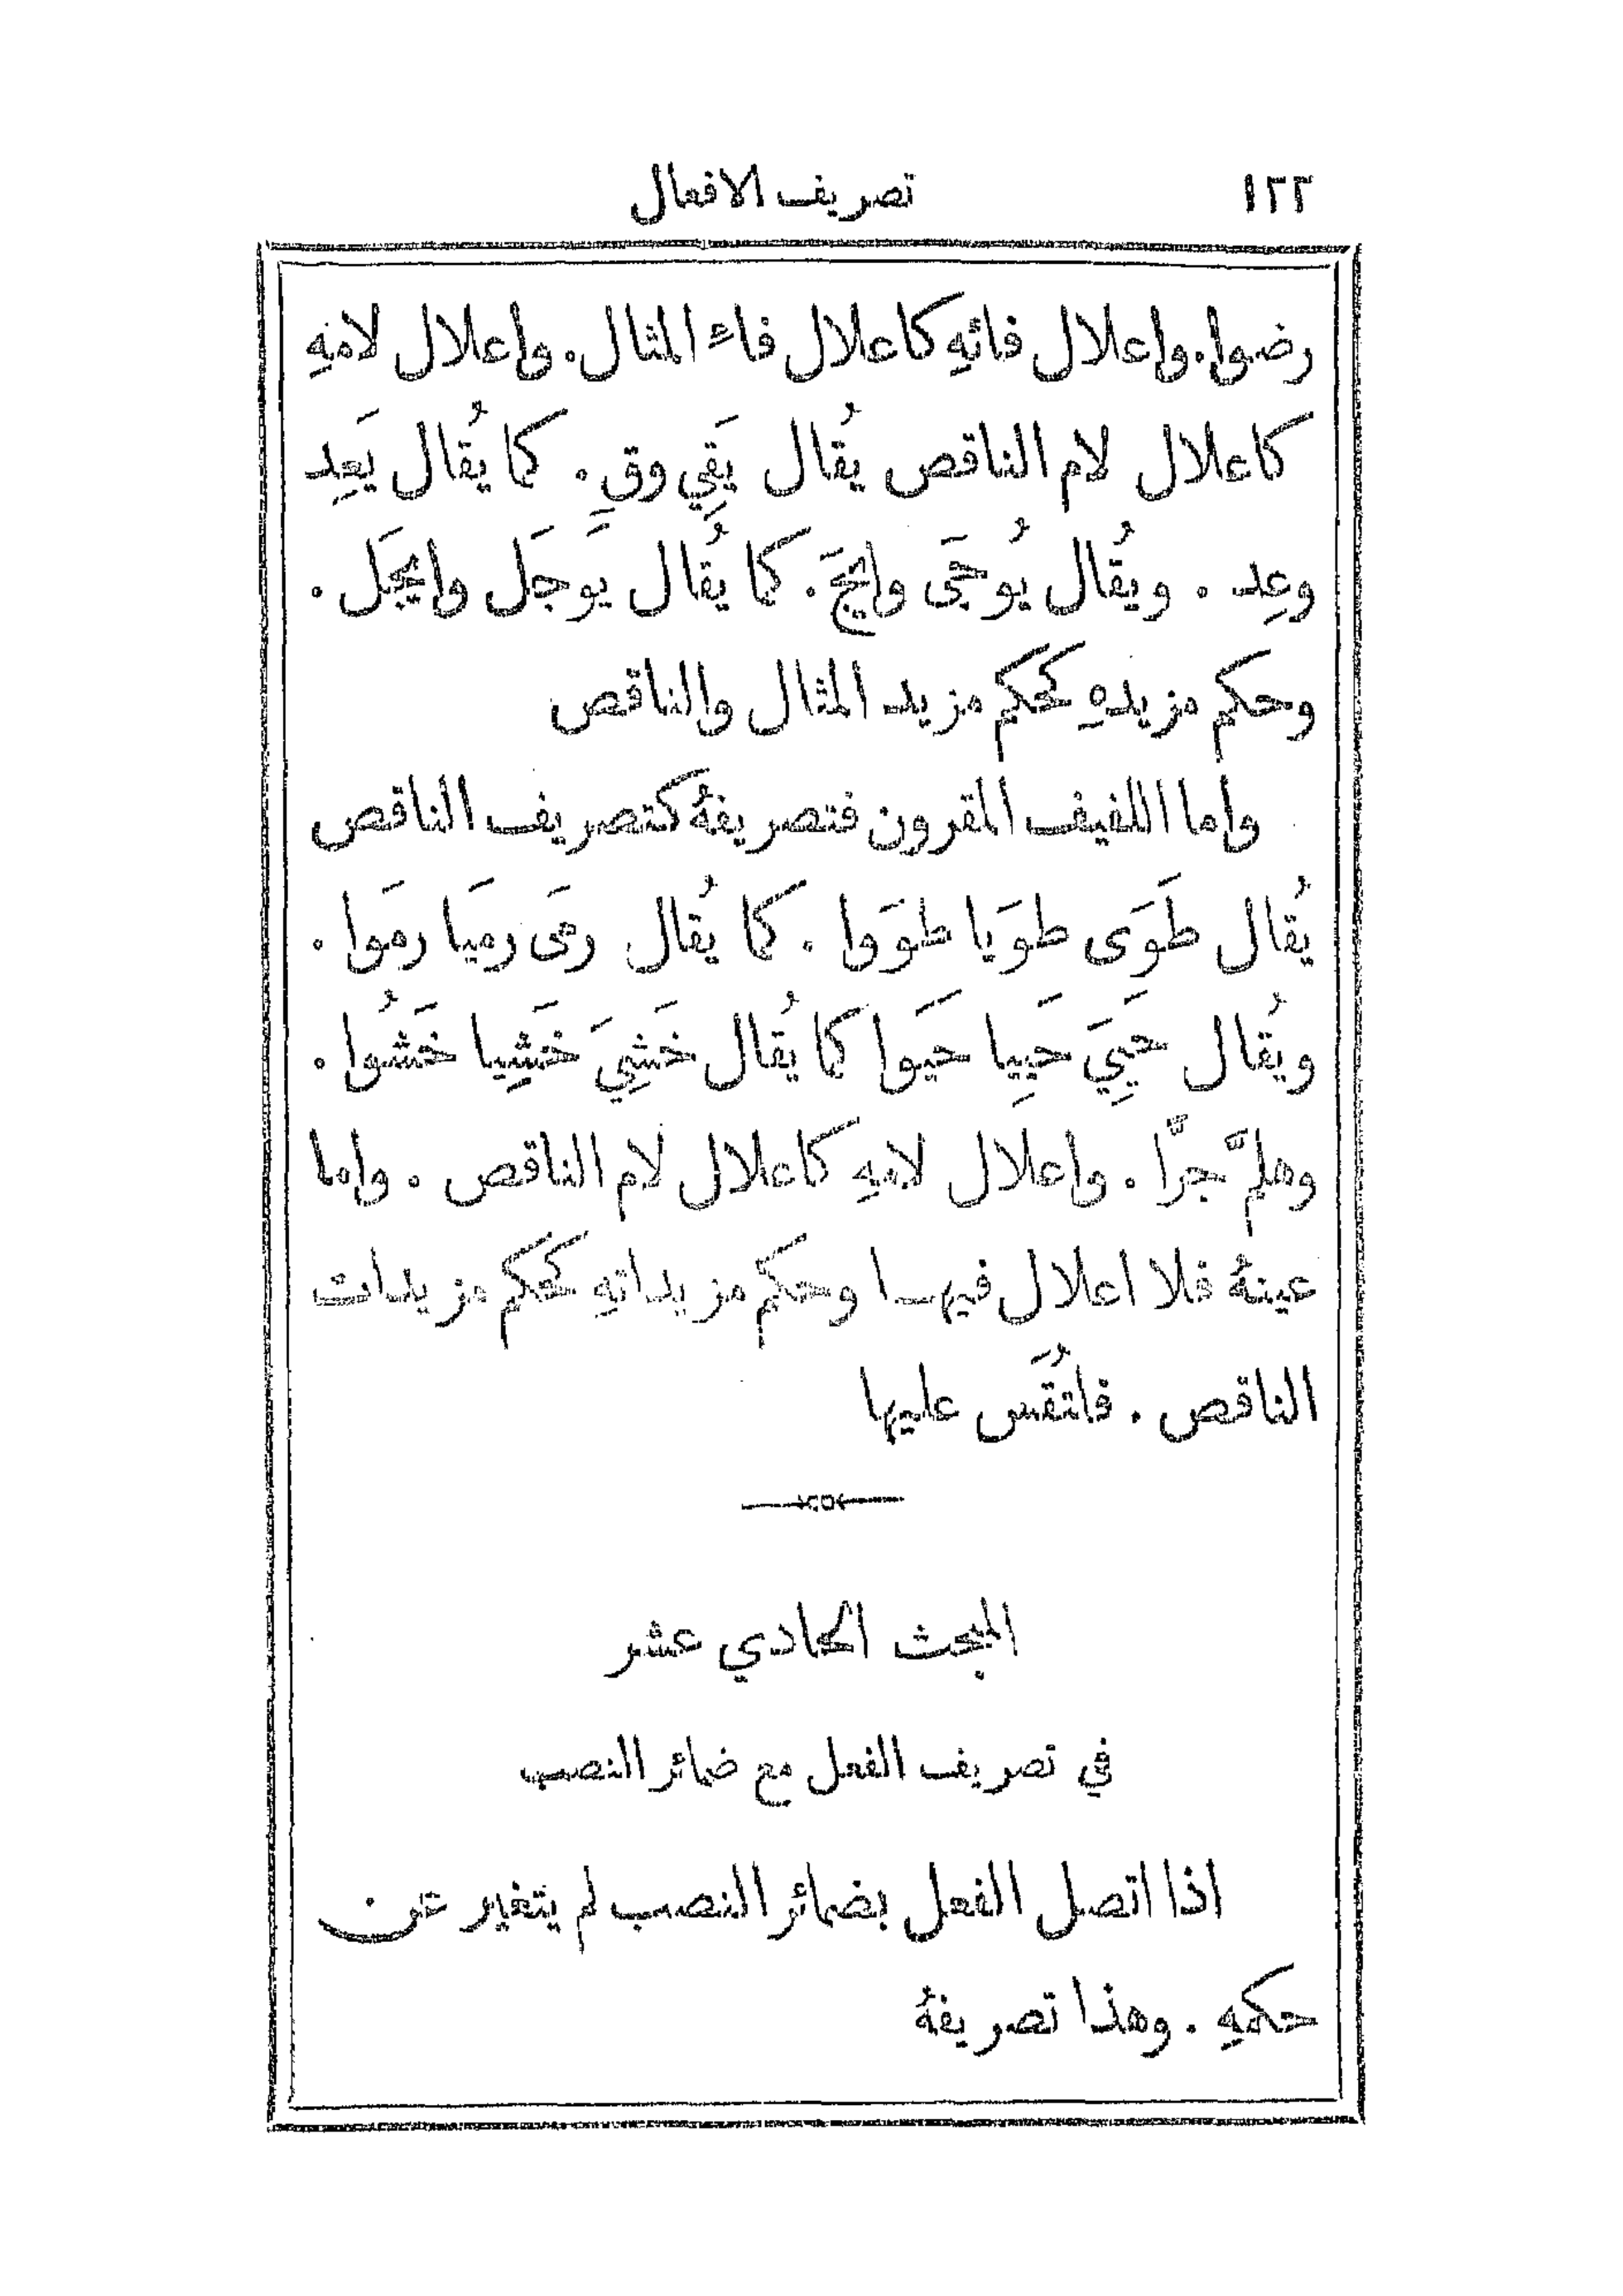 ١٢٢ تصريف الافعال
رضوا. واعلال فائهِ كاعلال فاء المثال. واعلال لامهِ
كاعلال لام الناقص يُقال يَقِي وقِ. كما يُقال يَعِد
وعِد. ويُقال يُوجَى وايجَ. كما يُقال يوجَل وايجَل.
وحكم مزيدهِ كحكم مزيد المثال والناقص
واما اللفيف المقرون فتصريفهُ كتصريف الناقص
يُقال طَوَى طوَيا طوَوا. كما يُقال رمَى رميَا رمَوا.
ويُقال حَيِيَ حَيِيا حَيوا كما يُقال خَشِيَ خَشِيا خَشُوا.
وهلمَّ جرًّا. واعلال لامهِ كاعلال لام الناقص. واما
عينهُ فلا اعلال فيهـا وحكم مزيداتهِ كحكم مزيدات
الناقص. فلتُقَس عليها
المبحث الحادي عشر
في تصريف الفعل مع ضمائر النصب
اذا اتصل الفعل بضمائر النصب لم يتغير عن
حكمهِ. وهذا تصريفهُ